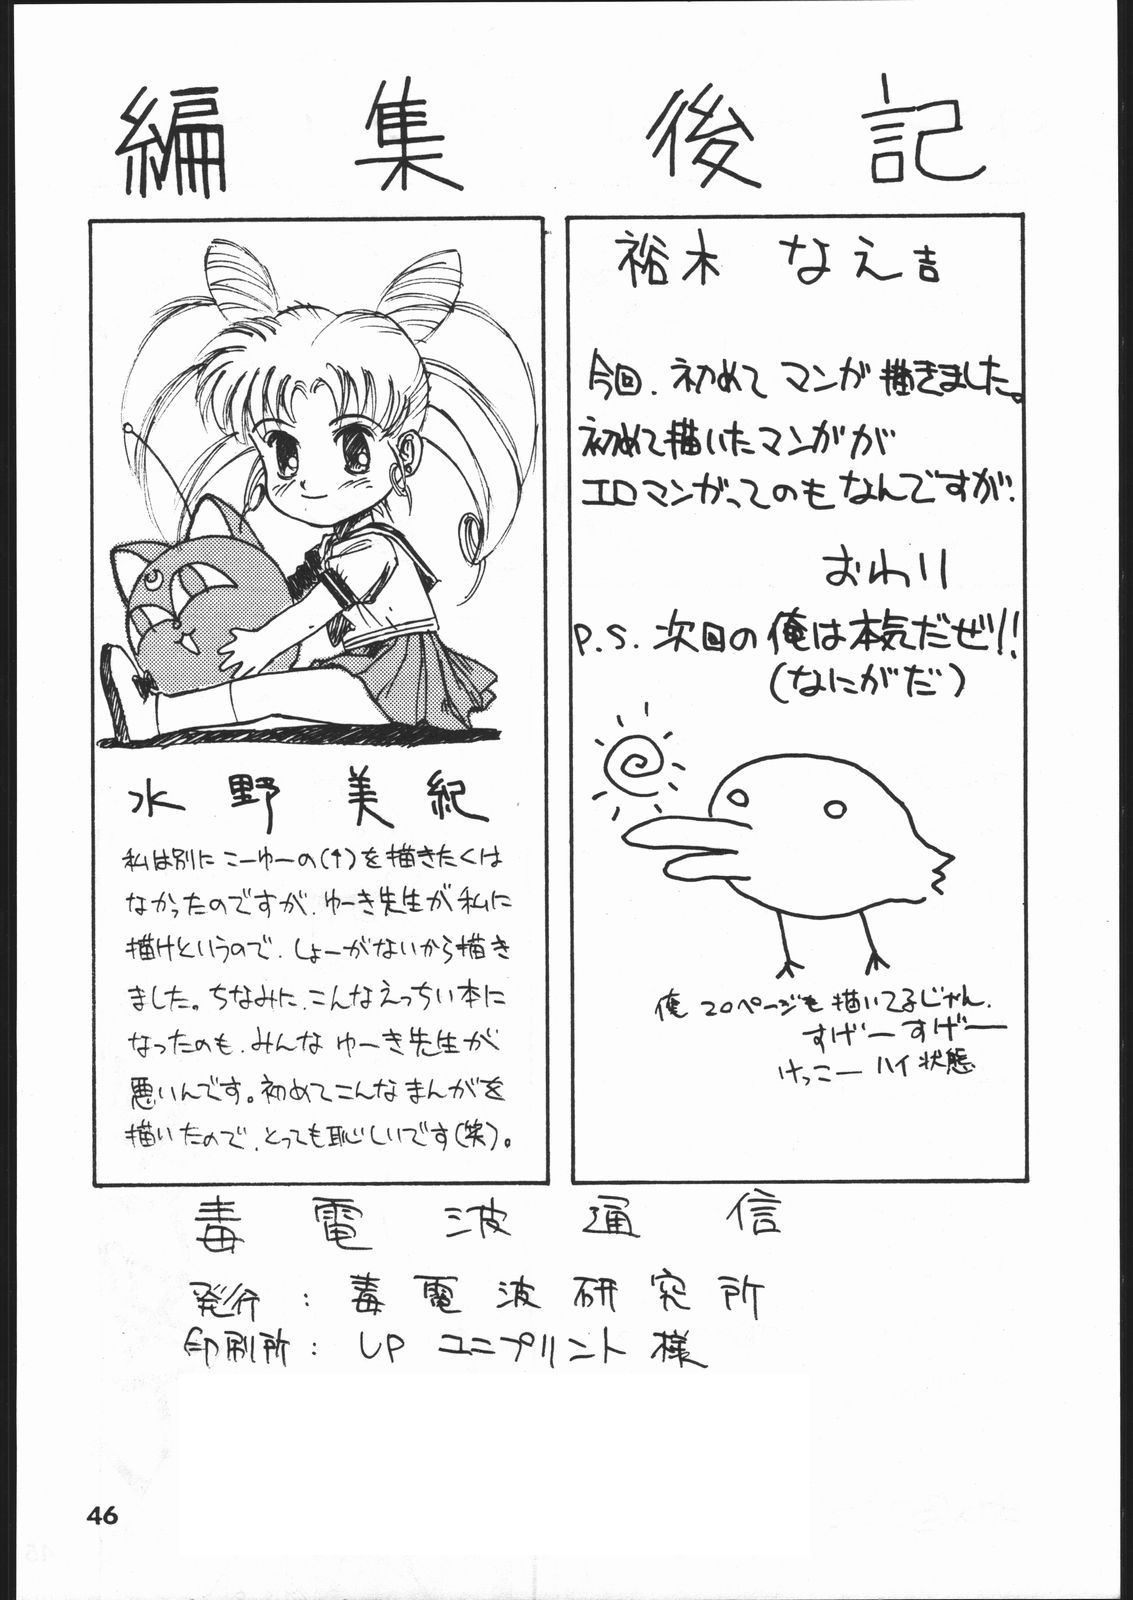 編集後記
水野美紀
私は別にこーゆーの(↑)を描きたくは
なかったのですが、ゆーき先生が私に
描けというので、しょーがないから描き
ました。ちなみに、こんなえっちい本に
なったのも、みんなゆーき先生が
悪いんです。初めてこんなまんがを
描いたので、とっても恥しいです(笑)。
裕木 なえ吉
今回、初めてマンガ描きました。
初めて描いたマンガが
エロマンガってのもなんですが、
おわり
P.S. 次回の俺は本気だぜ!!
(なにがだ)
俺20ページも描いてるじゃん、
すげーすげー
けっこーハイ状態
毒電波通信
発行:毒電波研究所
印刷所:UPユニプリント様
46